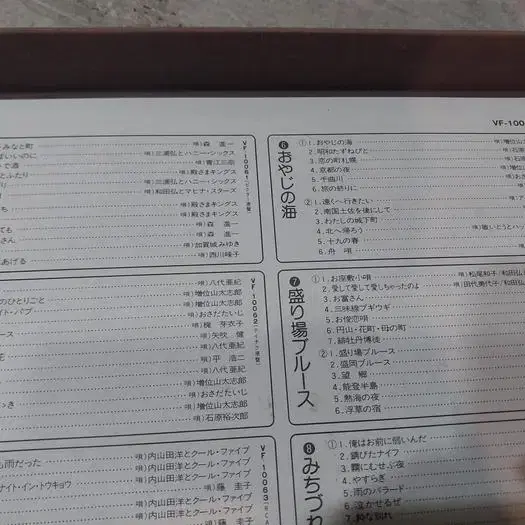 VF-100
みなと町 唄)森 進一
ばいいのに 唄)三浦弘とハニー・シックス
で酒 唄)青江三奈
とふたり 唄)殿さまキングス
り 唄)三浦弘とハニー・シックス
唄)和田弘とマヒナ・スターズ
ち 唄)殿さまキングス
唄)殿さまキングス
ても 唄)森 進一
さん 唄)森 進一
唄)加賀城みゆき
あげる 唄)西川峰子
VF-10061(ビクター原盤)
唄)八代亜紀
のひとりごと 唄)増位山太志郎
イト・パブ 唄)おさだたいじ
唄)梶 芽衣子
ース 唄)矢吹 健
唄)八代亜紀
花 唄)平 浩二
唄)八代亜紀
唄)増位山太志郎
っき 唄)おさだたいじ
唄)増位山太志郎
唄)石原裕次郎
VF-10062(テイチク原盤)
唄)内山田洋とクール・ファイブ
も雨だった 唄)内山田洋とクール・ファイブ
唄)藤 圭子
ナイト・イン・トウキョウ 唄)内山田洋とクール・ファイブ
唄)内山田洋とクール・ファイブ
唄)藤 圭子
VF-10063
❻おやじの海
①1.おやじの海 唄)増位山
2.昭和たずねびと 唄)石原
3.恋の町札幌 唄)石原
4.京都の夜
5.千曲川
6.旅の終りに
②1.遠くへ行きたい
2.南国土佐を後にして
3.わたしの城下町
4.北へ帰ろう 唄)敏いとうとハッ
5.十九の春
6.舟 唄
❼盛り場ブルース
①1.お座敷小唄 唄)松尾和子/和田弘
2.愛して愛して愛しちゃったのよ 唄)田代美代子/和田弘
3.お富さん
4.三味線ブギウギ
5.お俊恋唄
6.円山・花町・母の町
7.緋牡丹博徒
②1.盛り場ブルース
2.盛岡ブルース
3.望 郷
4.能登半島
5.熱海の夜
6.浮草の宿
❽みちづれ
①1.俺はお前に弱いんだ
2.錆びたナイフ
3.霧にむせぶ夜
4.やすらぎ
5.雨のバラード
6.泣かせるぜ
7.粋な別れ